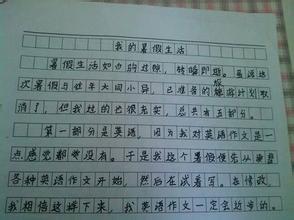 我的暑假生活
暑假生活如白驹过隙，转瞬即逝。虽说这
次暑假与往年大同小异，已准备的旅游计划取
消了，但我过的也很充实，总共有五部分。
第一部分是英语，因为我对英语作文是一
点感觉都没有。于是我这个暑假便先从背
各种英语作文开始，然后在试着写。在修改，
我相信这样下来，我英语作文一定会进步的。